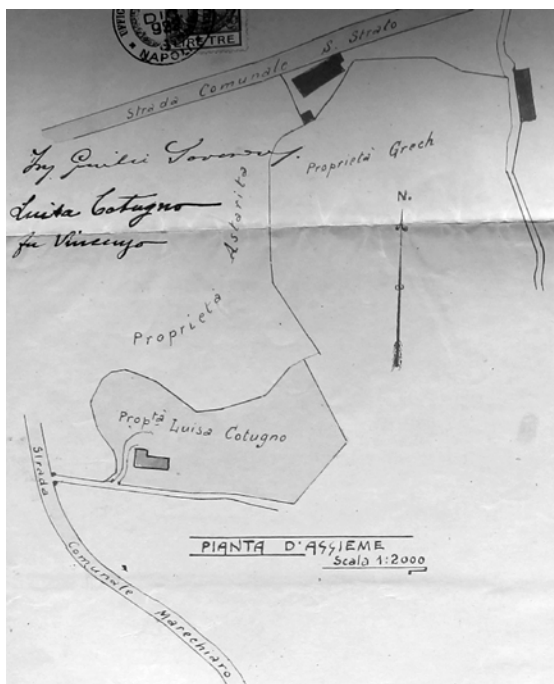 UFFIC
NAPOLI
LIRE TRE
Strada Comunale S. Stralo
Ing
Luisa Cotugno
fu Vincenzo
Proprietà Grech
N.
Proprietà Astarita
Proptà Luisa Cotugno
Strada Comunale Marechiaro
PIANTA D'ASSIEME
Scala 1:2000